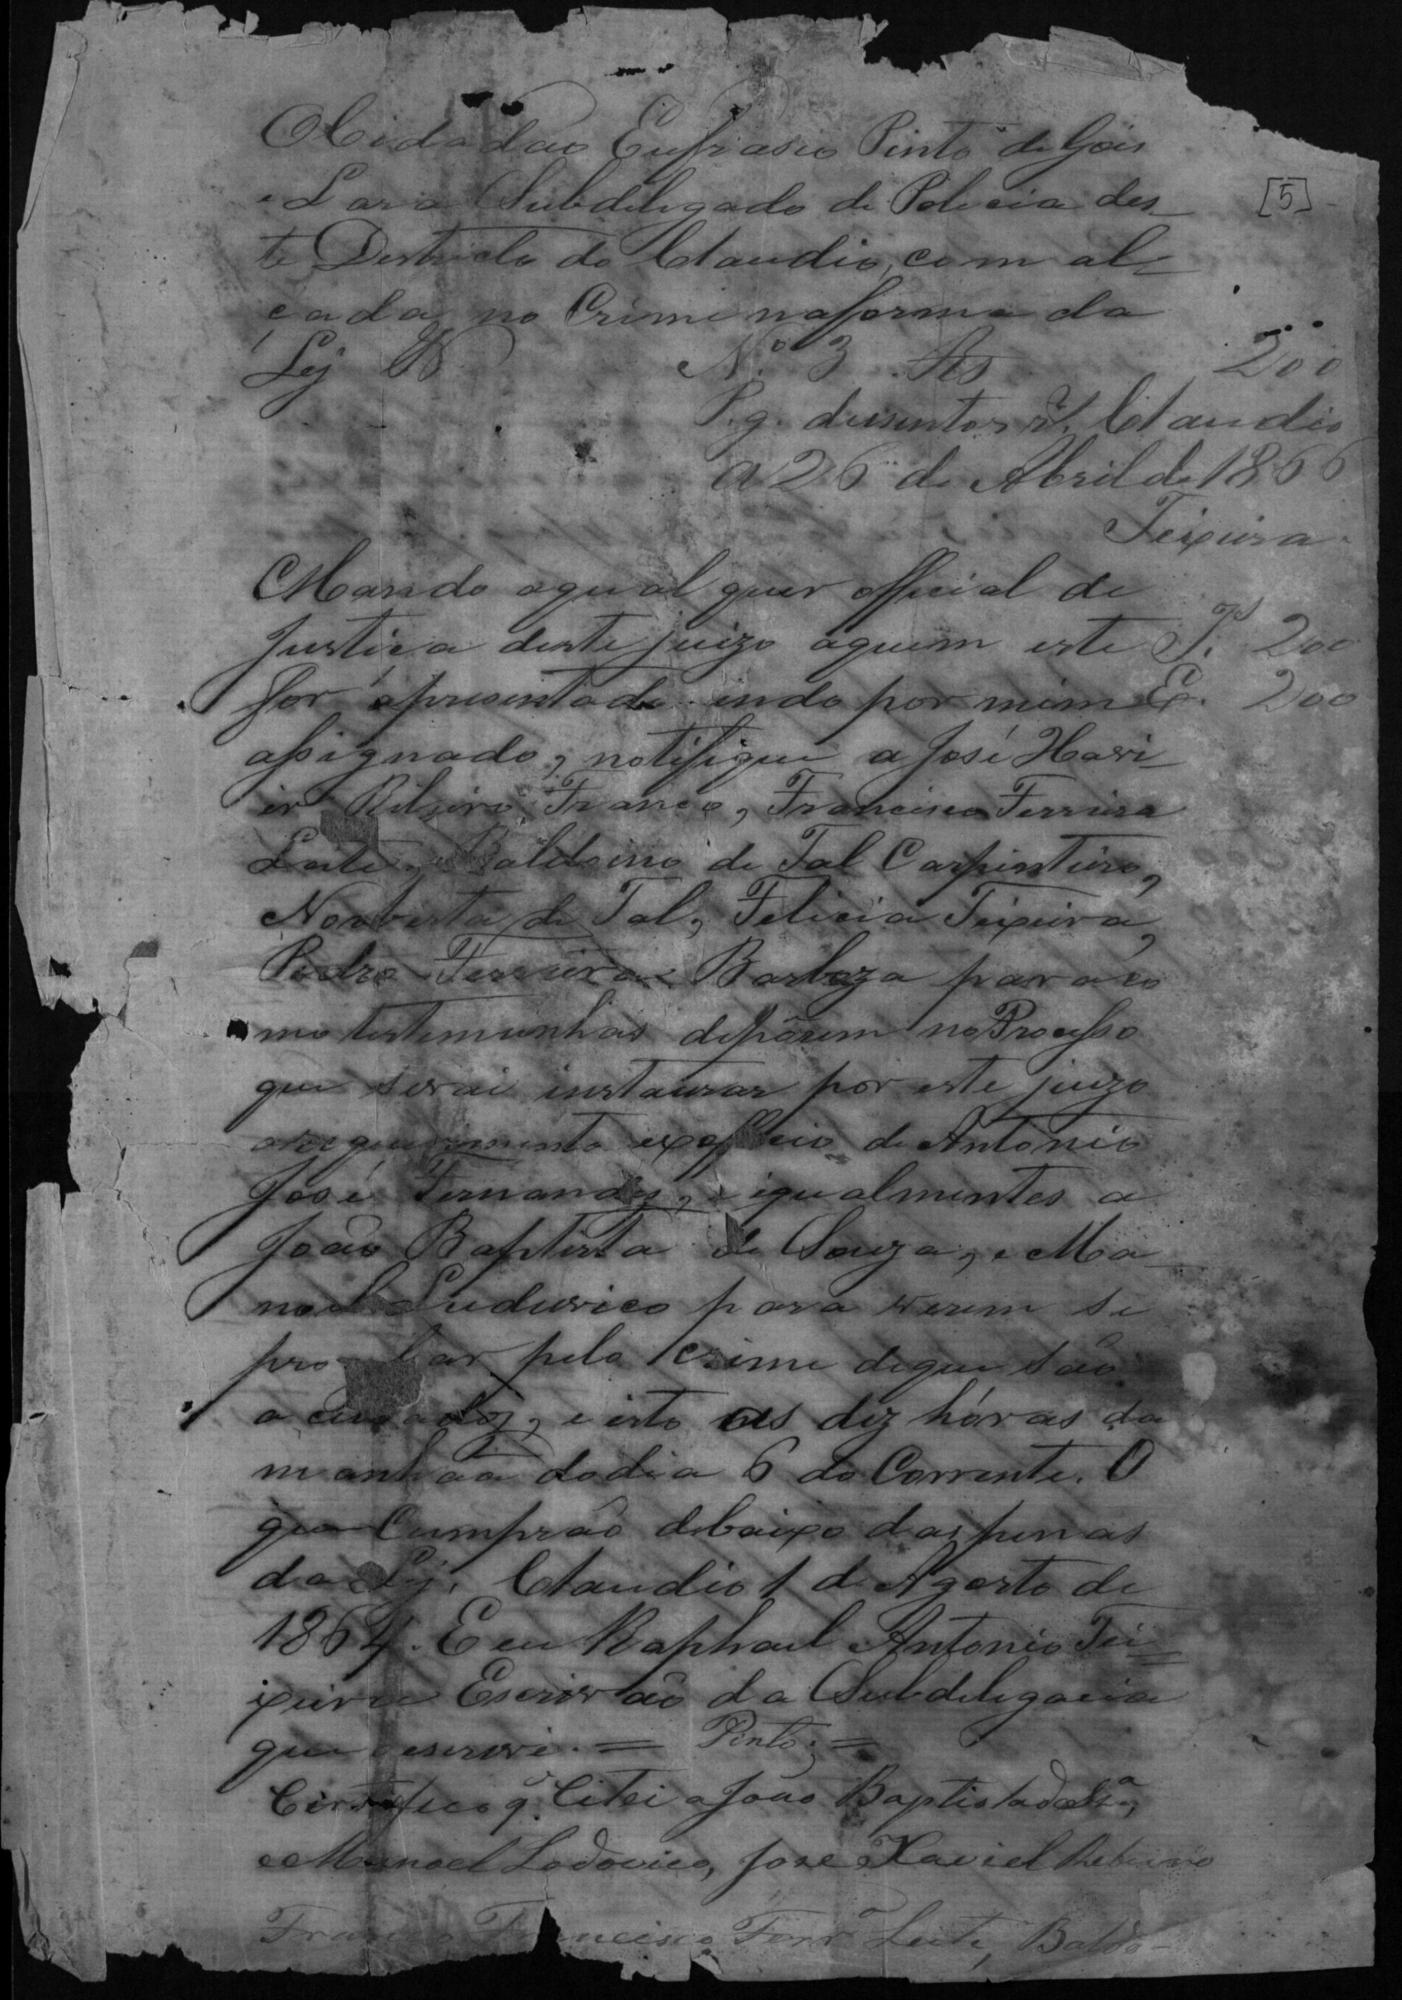 O Cidadão Eufrasio Pinto de Góis
e Lara Subdelegado de Policia des-
te Destricto do Claudio, com al-
çada, no Crime na forma da
[5]
Ley &
Nº 3 Rs 200
Pg. dusentos rs. Claudio
a 26 de Abril de 1866
Teixeira
Mando aqualquer official de
Justiça deste juizo aquem este
for apresentado indo por mim
assignado, notifique a José Xavi-
er Ribeiro Franco, Francisco Ferreira
Leite, Baldoino de Tal Carpinteiro,
Norberta de Tal, Felicia Teixeira,
Pedro Ferreira Barboza para co
mo testemunhas depôrem no Processo
que se vai instaurar por este juizo
a requerimento exofficio de Antonio
José Fernandes, e igualmentes a
João Baptista de Souza, e Ma-
noel Luduvico para verem se
pro ar pelo crime de que são
acusados, e isto as dez hóras da
manhãa do dia 6 do Corrente. O
que Cumprão debaixo das penas
da Ley. Claudio 1 de Agosto de
1864. E eu Raphael Antonio Tei-
xeira Escrivão da Subdelegacia
que escrevi. = Pinto =
Certefico q. Citei a João Baptista de Sza,
e Manoel Lodovico, Jose Xaviel Ribeiro
Franco Francisco Ferrª Leite, Baldo-
200
E. 200